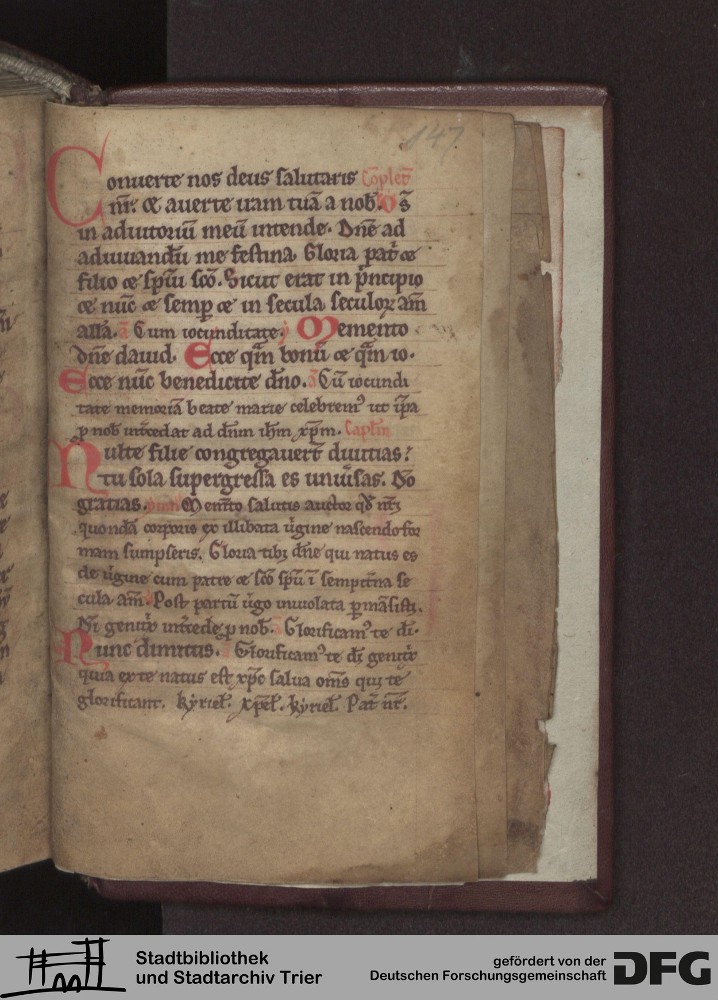 147
Conuerte nos deus salutaris Cōplet̄
nr̄. ⁊ auerte iram tuā a nob̄. Ds̄
in adiutoriū meū intende. Dn̄e ad
adiuuandū me festina. Gloria pat̄ ⁊
filio ⁊ sp̄ui sc̄o. Sicut erat in p̄ncipio
⁊ nūc ⁊ semp̲ ⁊ in secula seculoꝝ am̄
all̄a. a Cum iocunditate. Memento
dn̄e dauid. Ecce qm̄ bonū ⁊ qm̄ io.
Ecce nūc benedicite dn̄o. a Cū iocundi
tate memoriā beate marie celebremꝰ ut ip̄a
ꝓ nob̄ int̄cedat ad dn̄m ih̄m xp̄m. Capl̄m
Multe filie congregauert̄ diuitias:
tu sola supergressa es uniūsas. Do
gratias. Mem̄to salutis auctor qd̄ nr̄i
quondā corporis ex illibata ūgine nascendo for
mam sumpseris. Gloria tibi dn̄e qui natus es
de ūgine cum patre ⁊ sc̄o sp̄u ī sempit̄na se
cula am̄. Post partū ūgo inuiolata ꝑmāsisti.
Di genitͥx int̄cede ꝓ nob̄. Glorificamꝰ te di.
Nunc dimittis. Glorificamꝰ te di genitͥx
quia ex te natus est xp̄c salua om̄s qui te
glorificant. kyriel̄. xp̄el̄. kyriel̄. Pat̄ nr̄.
Stadtbibliothek
und Stadtarchiv Trier
gefördert von der
Deutschen Forschungsgemeinschaft
DFG